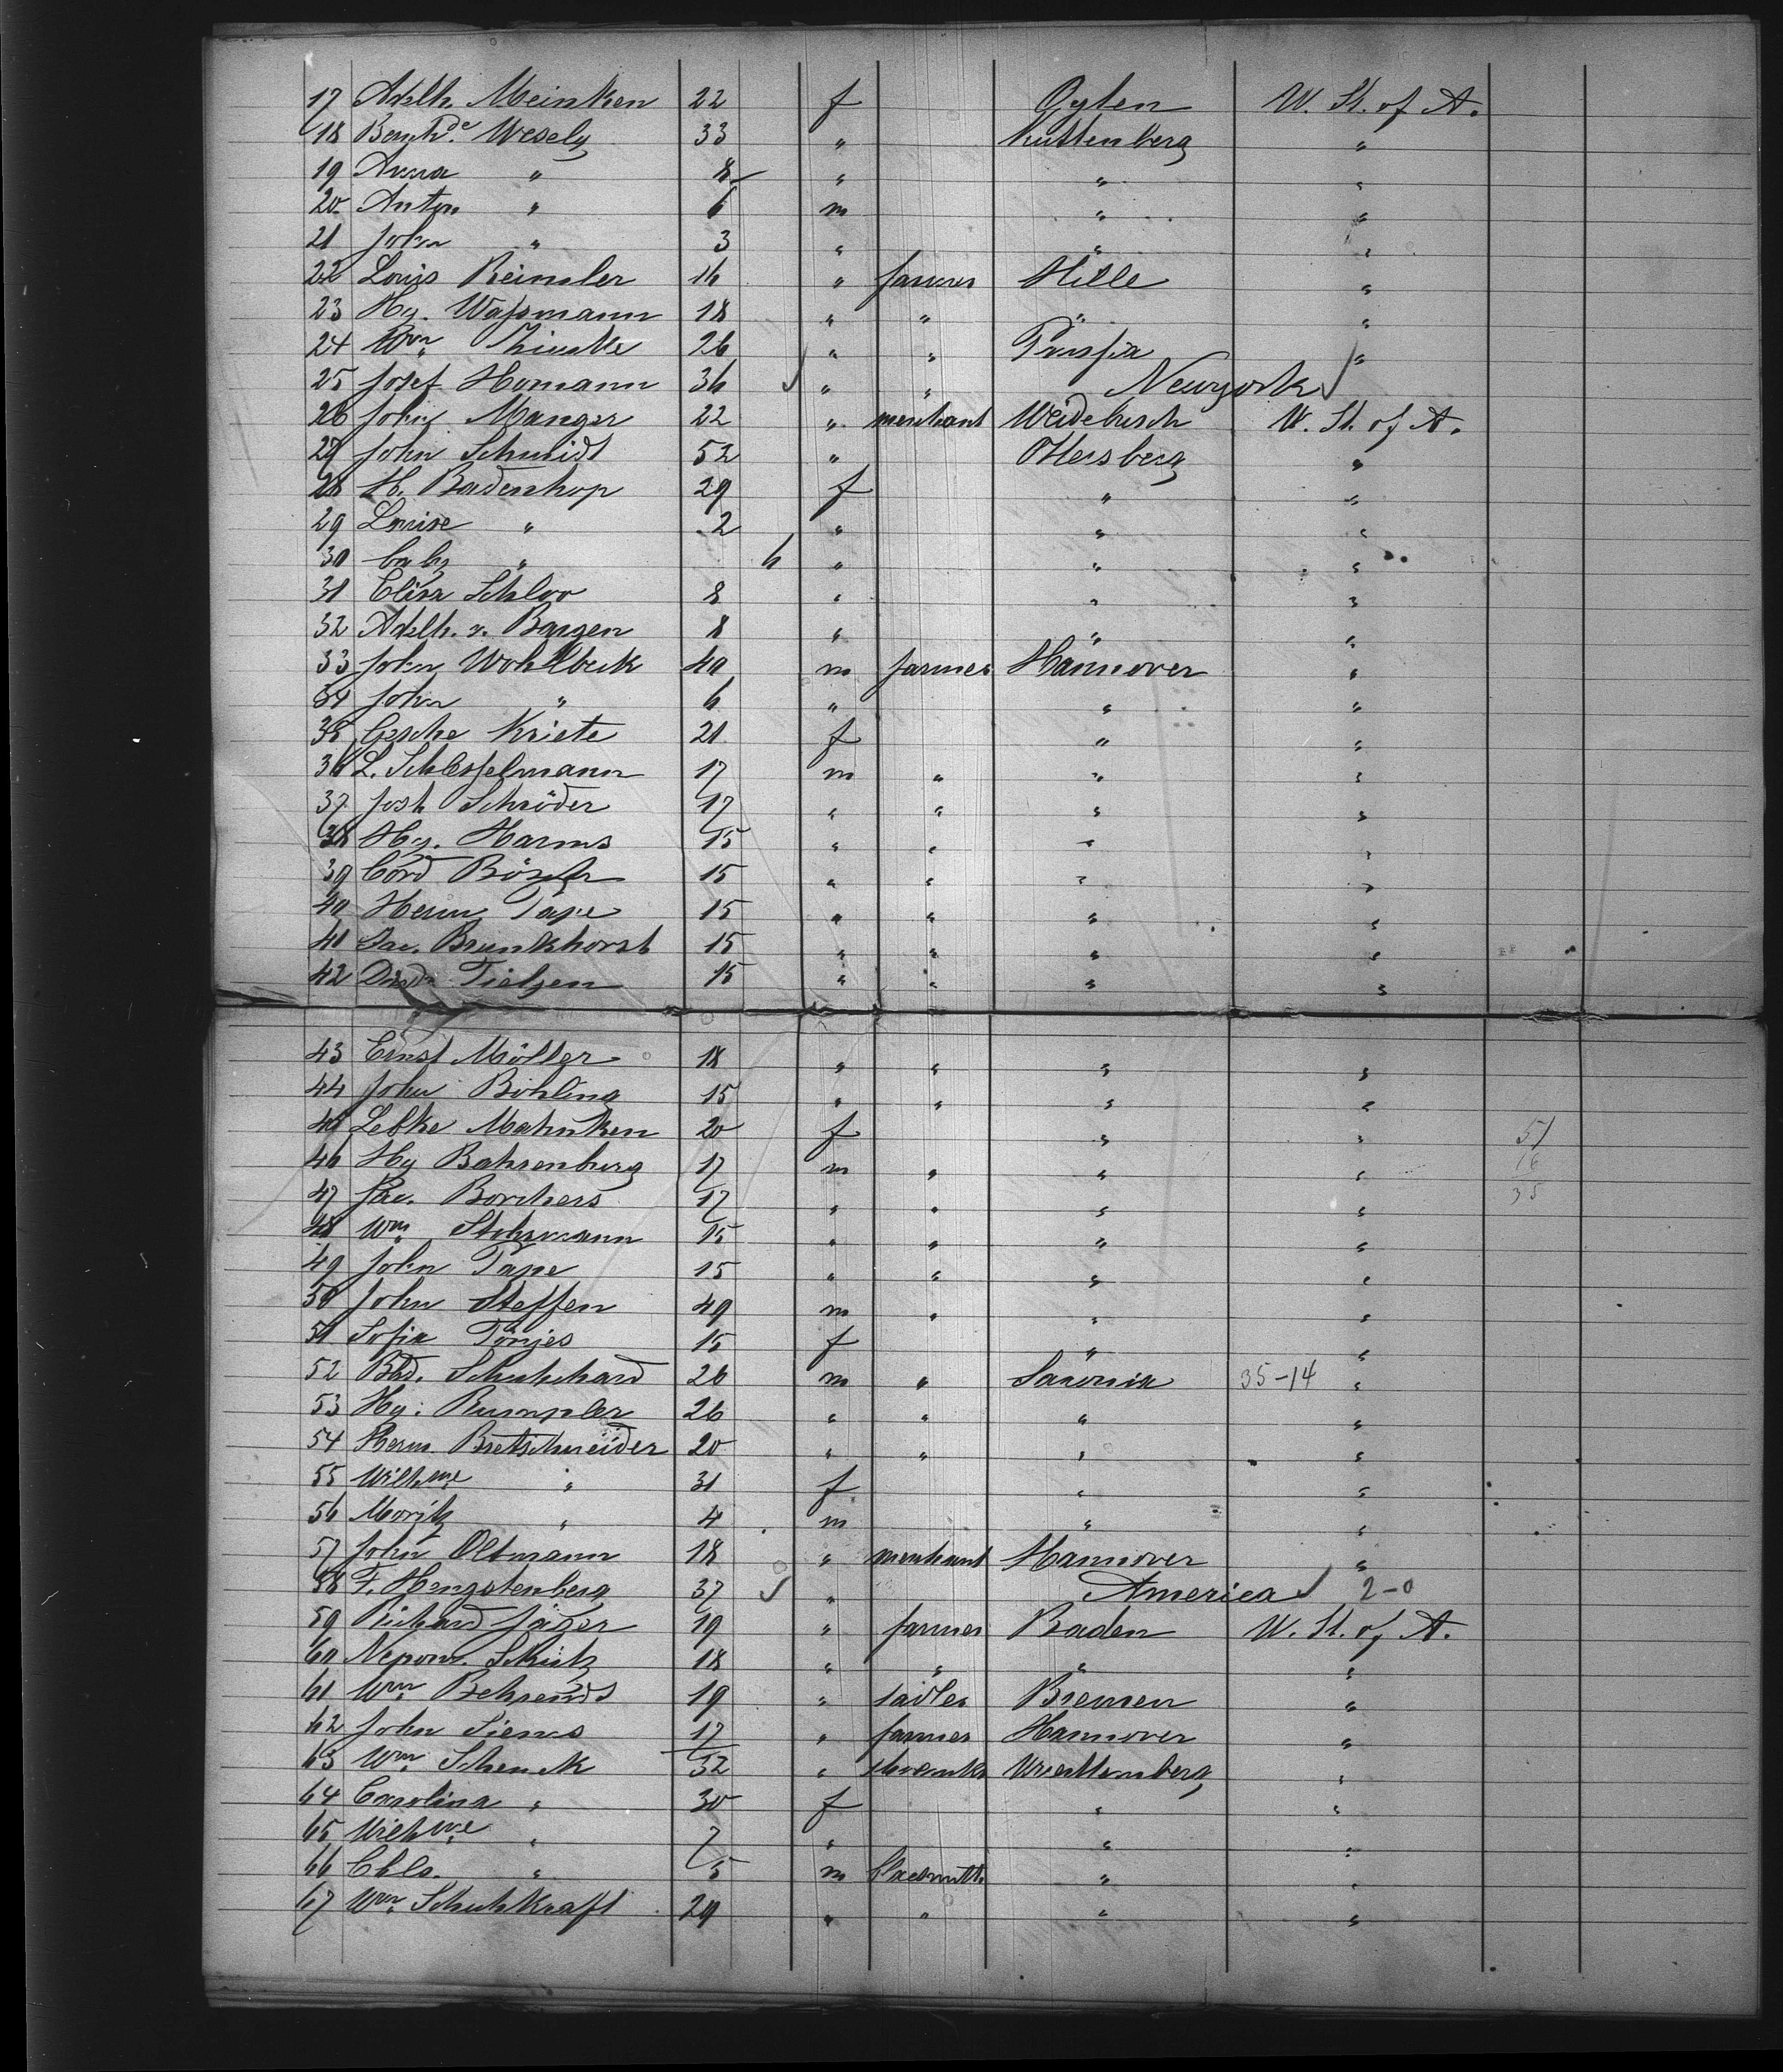 17 Adlh. Meinken 22 f Oyten U. St. of A.
18 Bernhde. Wesely 33 " Kuttenberg "
19 Anna " 8 " " "
20 Anton " 6 m " "
21 John " 3 " " "
22 Louis Reimler 16 " farmer Hille "
23 Hy. Waßmann 18 " " " "
24 Wm. 26 " " "
25 Josef Homann 36 ✓ " " Newyork ✓
26 John Manger 22 " merchant Weidebusch U. St. of A.
27 John Schmidt 52 " Ottersberg "
28 H. Badenhop 29 f " "
29 Louise " 2 " " "
30 baby " 6 " " "
31 Elisa Schloo 8 " " "
32 Adlh. v. Bargen 8 " " "
33 John Wohltbeck 40 m farmer Hannover "
34 John " 6 " " "
35 Gesche Kriete 21 f " "
36 L. Schlesselmann 17 m " " "
37 Josh Schröder 17 " " " "
38 Hy. Harms 15 " " " "
39 Cord Bösch 15 " " " "
40 Herm Tape 15 " " " "
41 Jac. Brunkhorst 15 " " " "
42 Died. Tietjen 15 " " " "
43 Ernst Möller 18 " " " "
44 John Böhling 15 " " " "
45 Lebke Mahnken 20 f " " 51
46 Hy Bahrenburg 17 m " " " 16
47 Jac. Borchers 17 " " " " 35
48 Wm. Stehrmann 15 " " " "
49 John Tape 15 " " " "
50 John Steffen 49 m " " "
51 Sofia Tönjes 15 f " "
52 Bhd. Schuhchard 26 m " Saxonia 35-14 "
53 Hy. Rumpler 26 " " " "
54 Herm. Bretschneider 20 " " " "
55 Wilhme " 31 f " "
56 Moritz " 4 m " "
57 John Oltmann 18 " merchant Hannover "
58 F. Hengstenberg 37 ✓ " America ✓ 2-0
59 Richard Jäger 19 " farmer Baden U. St. of A.
60 Nepom. Schütz 18 " " " "
61 Wm. Behrends 19 " sadler Bremen "
62 John Siems 17 " farmer Hannover "
63 Wm. Schenck 32 " Wuerttemberg "
64 Carolina " 30 f " "
65 Wilhme " 7 " " "
66 Chls. " 5 m " "
67 Wm. Schuhkraft 29 " " " "